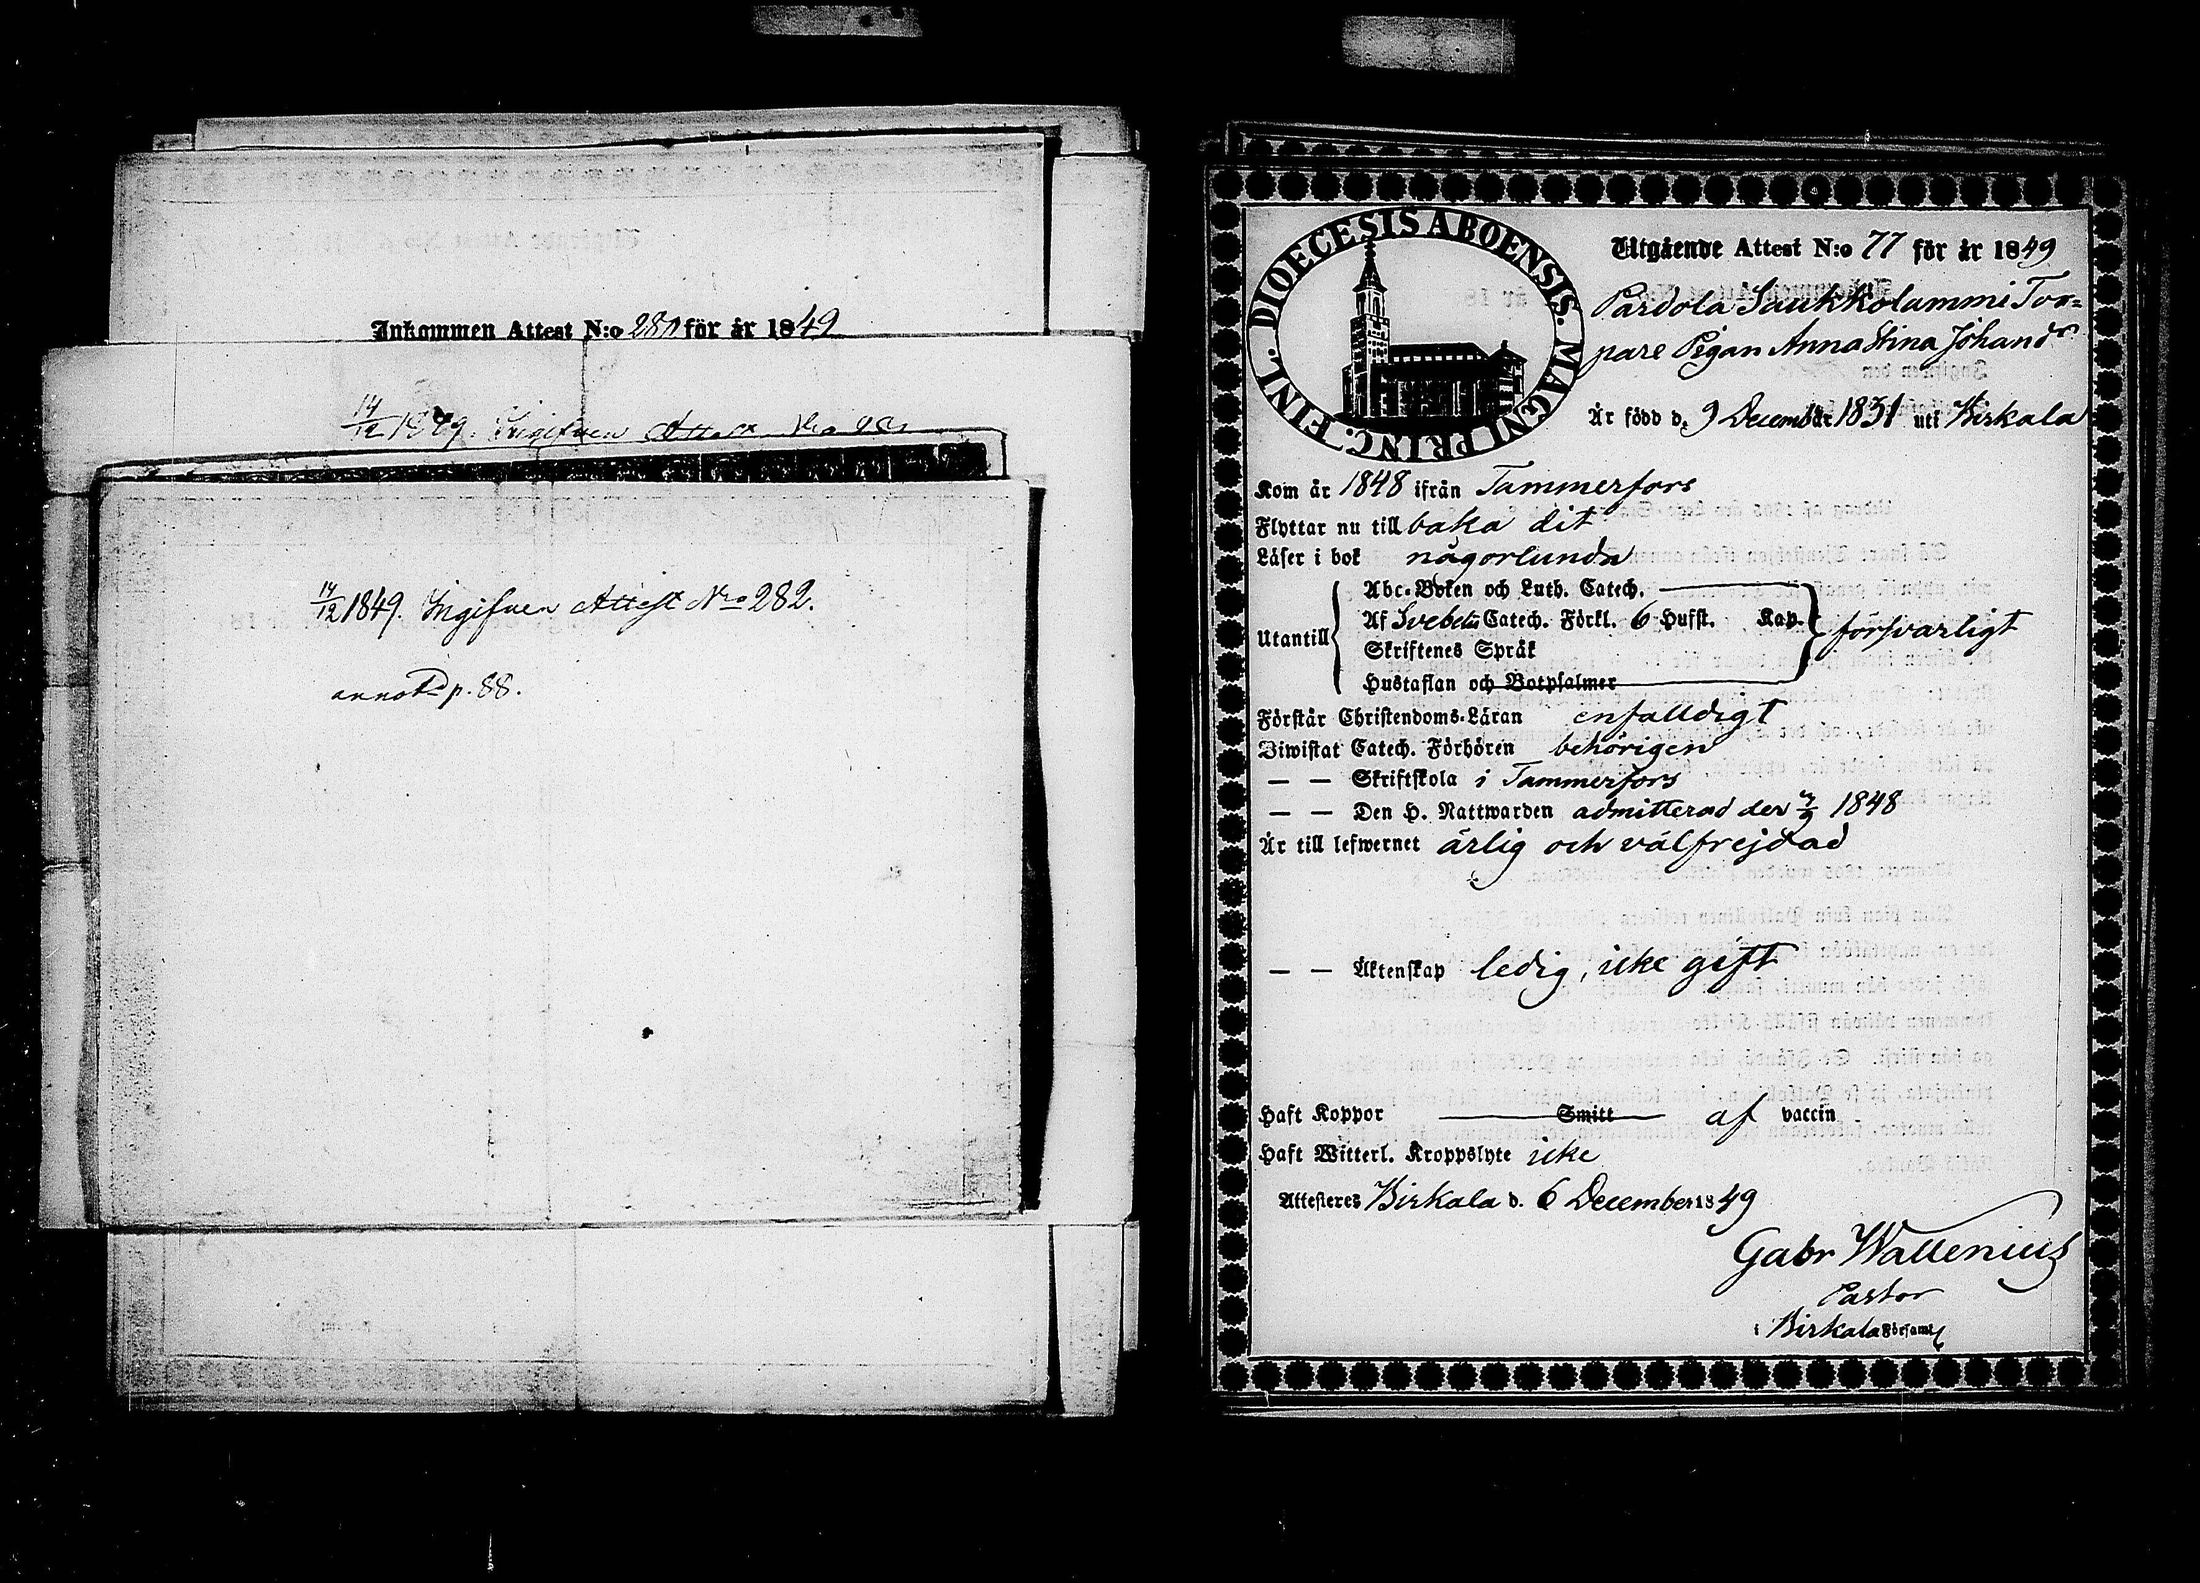 Inkommen Attest N:o 280 för år 1849
14/12 1849. Ingifven Attest No 281
14/12 1849. Ingifven Attest No 282.
annotd p. 88.
DIOECESIS ABOENSIS. MAGNI PRINC. FINL.
Utgående Attest N:o 77 för år 1849
Pardola Saukkolammi Tor=
pare Pigan Anna Stina Johandr
Är född d. 9 Decembr 1831 uti Birkala
Kom år 1848 ifrån Tammerfors
Flyttar nu till baka dit
Läser i bok någorlunda
Utantill
Abc-Boken och Luth. Catech.
Af Svebelii Catech. Förkl. 6 Hufst. Kap.
försvarligt
Skriftenes Språk
Hustaflan och Botpsalmer
Förstår Christendoms-Läran enfalldigt
Biwistat Catech. Förhören behörigen
— — Skriftskola i Tammerfors
— — Den H. Nattwarden admitterad den 3/9 1848
Är till lefwernet ärlig och välfrejdad
— — Äktenskap ledig, icke gift
Haft Koppor Smitt af vaccin
Haft Witterl. Kroppslyte icke
Attesteres Birkala d. 6 December 1849
Gabr Wallenius
Pastor
i Birkala Församl